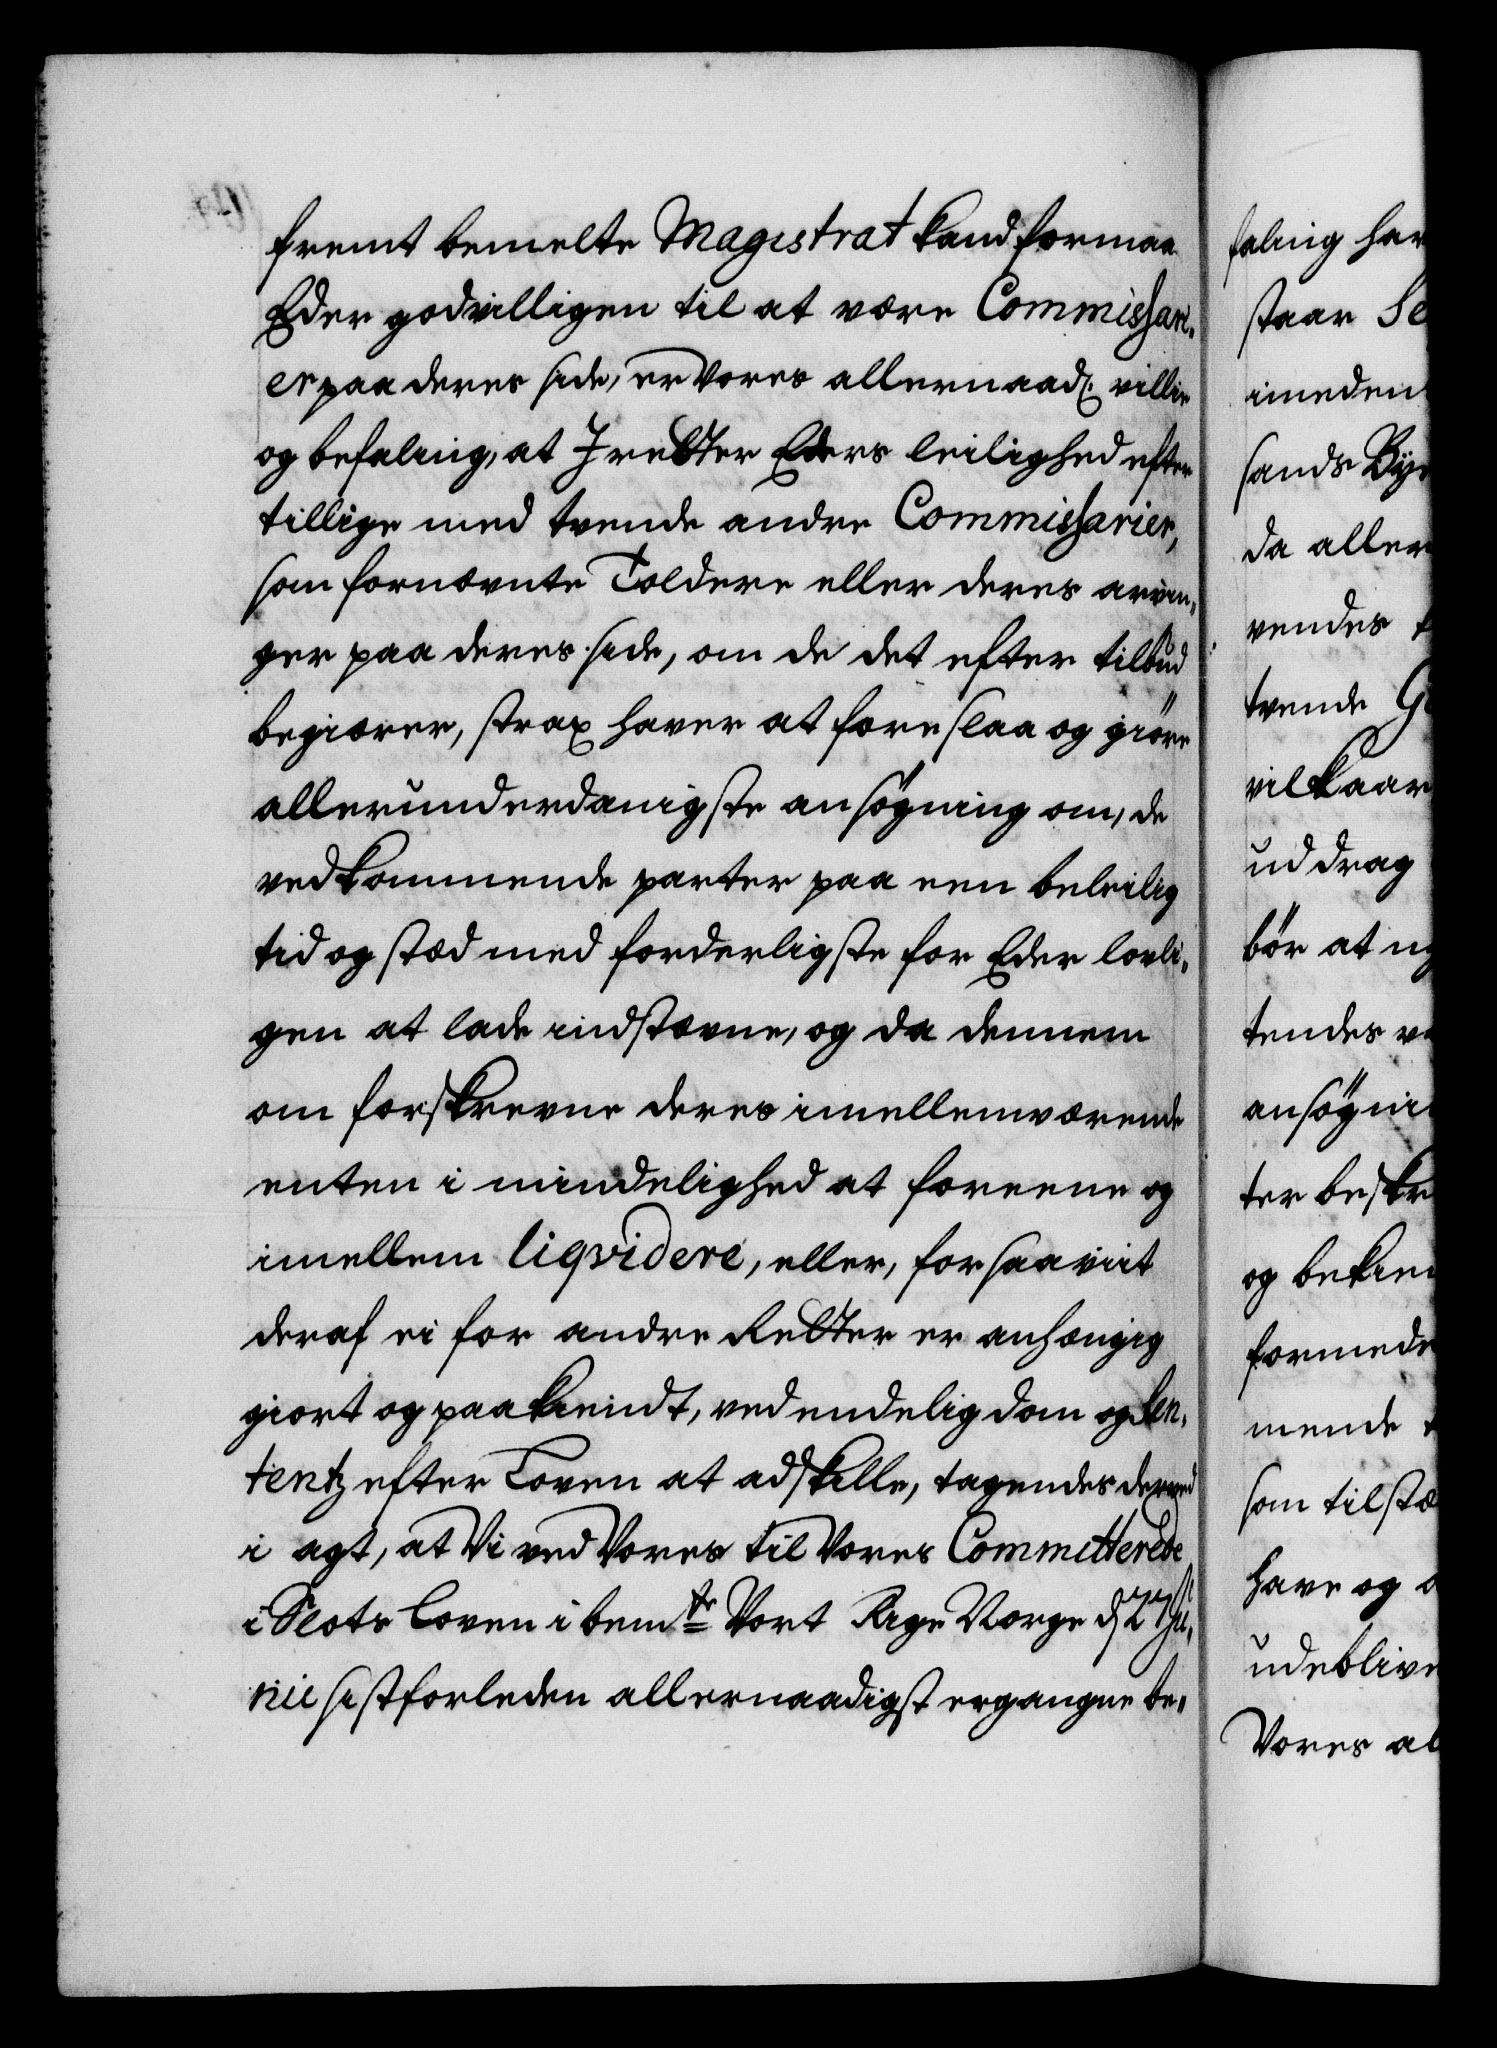 fremt bemelte Magistrat kand formaa
Eder godvilligen til at være Commissari-
er paa deres side, er Vores allernaad. villie
og befaling, at I retter Eders leilighed efter
tillige med tvende andre Commissarier,
som fornævnte Toldere eller deres arvin-
ger paa deres side, om de det efter tilbud
begiærer, strax haver at foreslaa og giöre
allerunderdanigste ansögning om, de
vedkommende parter paa een beleilig
tid og stæd med forderligste for Eder lovli-
gen at lade indstævne, og da dennem
om forskrevne deres imellemværende
enten i mindelighed at foreene og
imellem liqvidere, eller, forsaaviit
deraf ei for andre Retter er anhængig
giort og paakiendt, ved endelig dom og Sen-
tentz efter Loven at adskille, tagendes derved
i agt, at Vi ved Vores til Vores Committerede
i Slots Loven i bemte Vort Rige Norge d. 27 Ju-
nii sistforleden allernaadigst ergangne be-
faling har
staar Se
imeden
sands Bye
da aller
vendes
tvende
vilkaar
uddrag
bör at
tendes
ansögni
ter beskr
og bekien
formede
mende
som tilstæ
have og
udeblive
Vores al